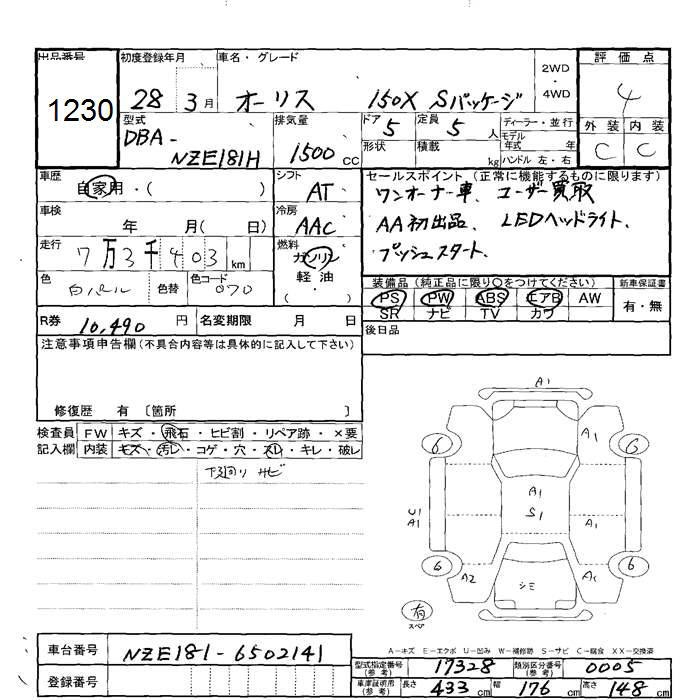 出品番号 初度登録年月 車名・グレード 2WD ・ 4WD 評価点
1230 28年 3月 オーリス 150X Sパッケージ 4
型式 排気量 ドア 5 定員 5人 ディーラー・並行 外装 内装
DBA- NZE181H 1500cc 形状 積載 kg モデル年式 年 ハンドル 左・右 C C
車歴 シフト セールスポイント (正常に機能するものに限ります)
自家用・( ) AT ワンオーナー車、ユーザー買取
車検 年 月( 日) 冷房 AAC AA初出品、LEDヘッドライト、
走行 7万3千403km 燃料 ガソリン 軽油 ( ) プッシュスタート、
色 白パール 色替 色コード 070 装備品 (純正品に限り○をつけてください) 新車保証書
PS PW ABS エアB AW 有・無
SR ナビ TV カワ
R券 10,490円 名変期限 月 日 後日品
注意事項申告欄(不具合内容等は具体的に記入して下さい)
修復歴 有 〔箇所 〕
検査員 FW キズ・飛石・ヒビ割・リペア跡・×要
記入欄 内装 キズ・汚レ・コゲ・穴・スレ・キレ・破レ
下廻り サビ
A1
6 A1 6
A1
U1 S1 A1
A1
6 6
A2 シミ A1
有
スペア
A-キズ E-エクボ U-凹み W-補修跡 S-サビ C-腐食 XX-交換済
車台番号 NZE181-6502141 型式指定番号(参考) 17328 類別区分番号(参考) 0005
登録番号 車庫証明用(参考) 長さ 433cm 幅 176cm 高さ 148cm